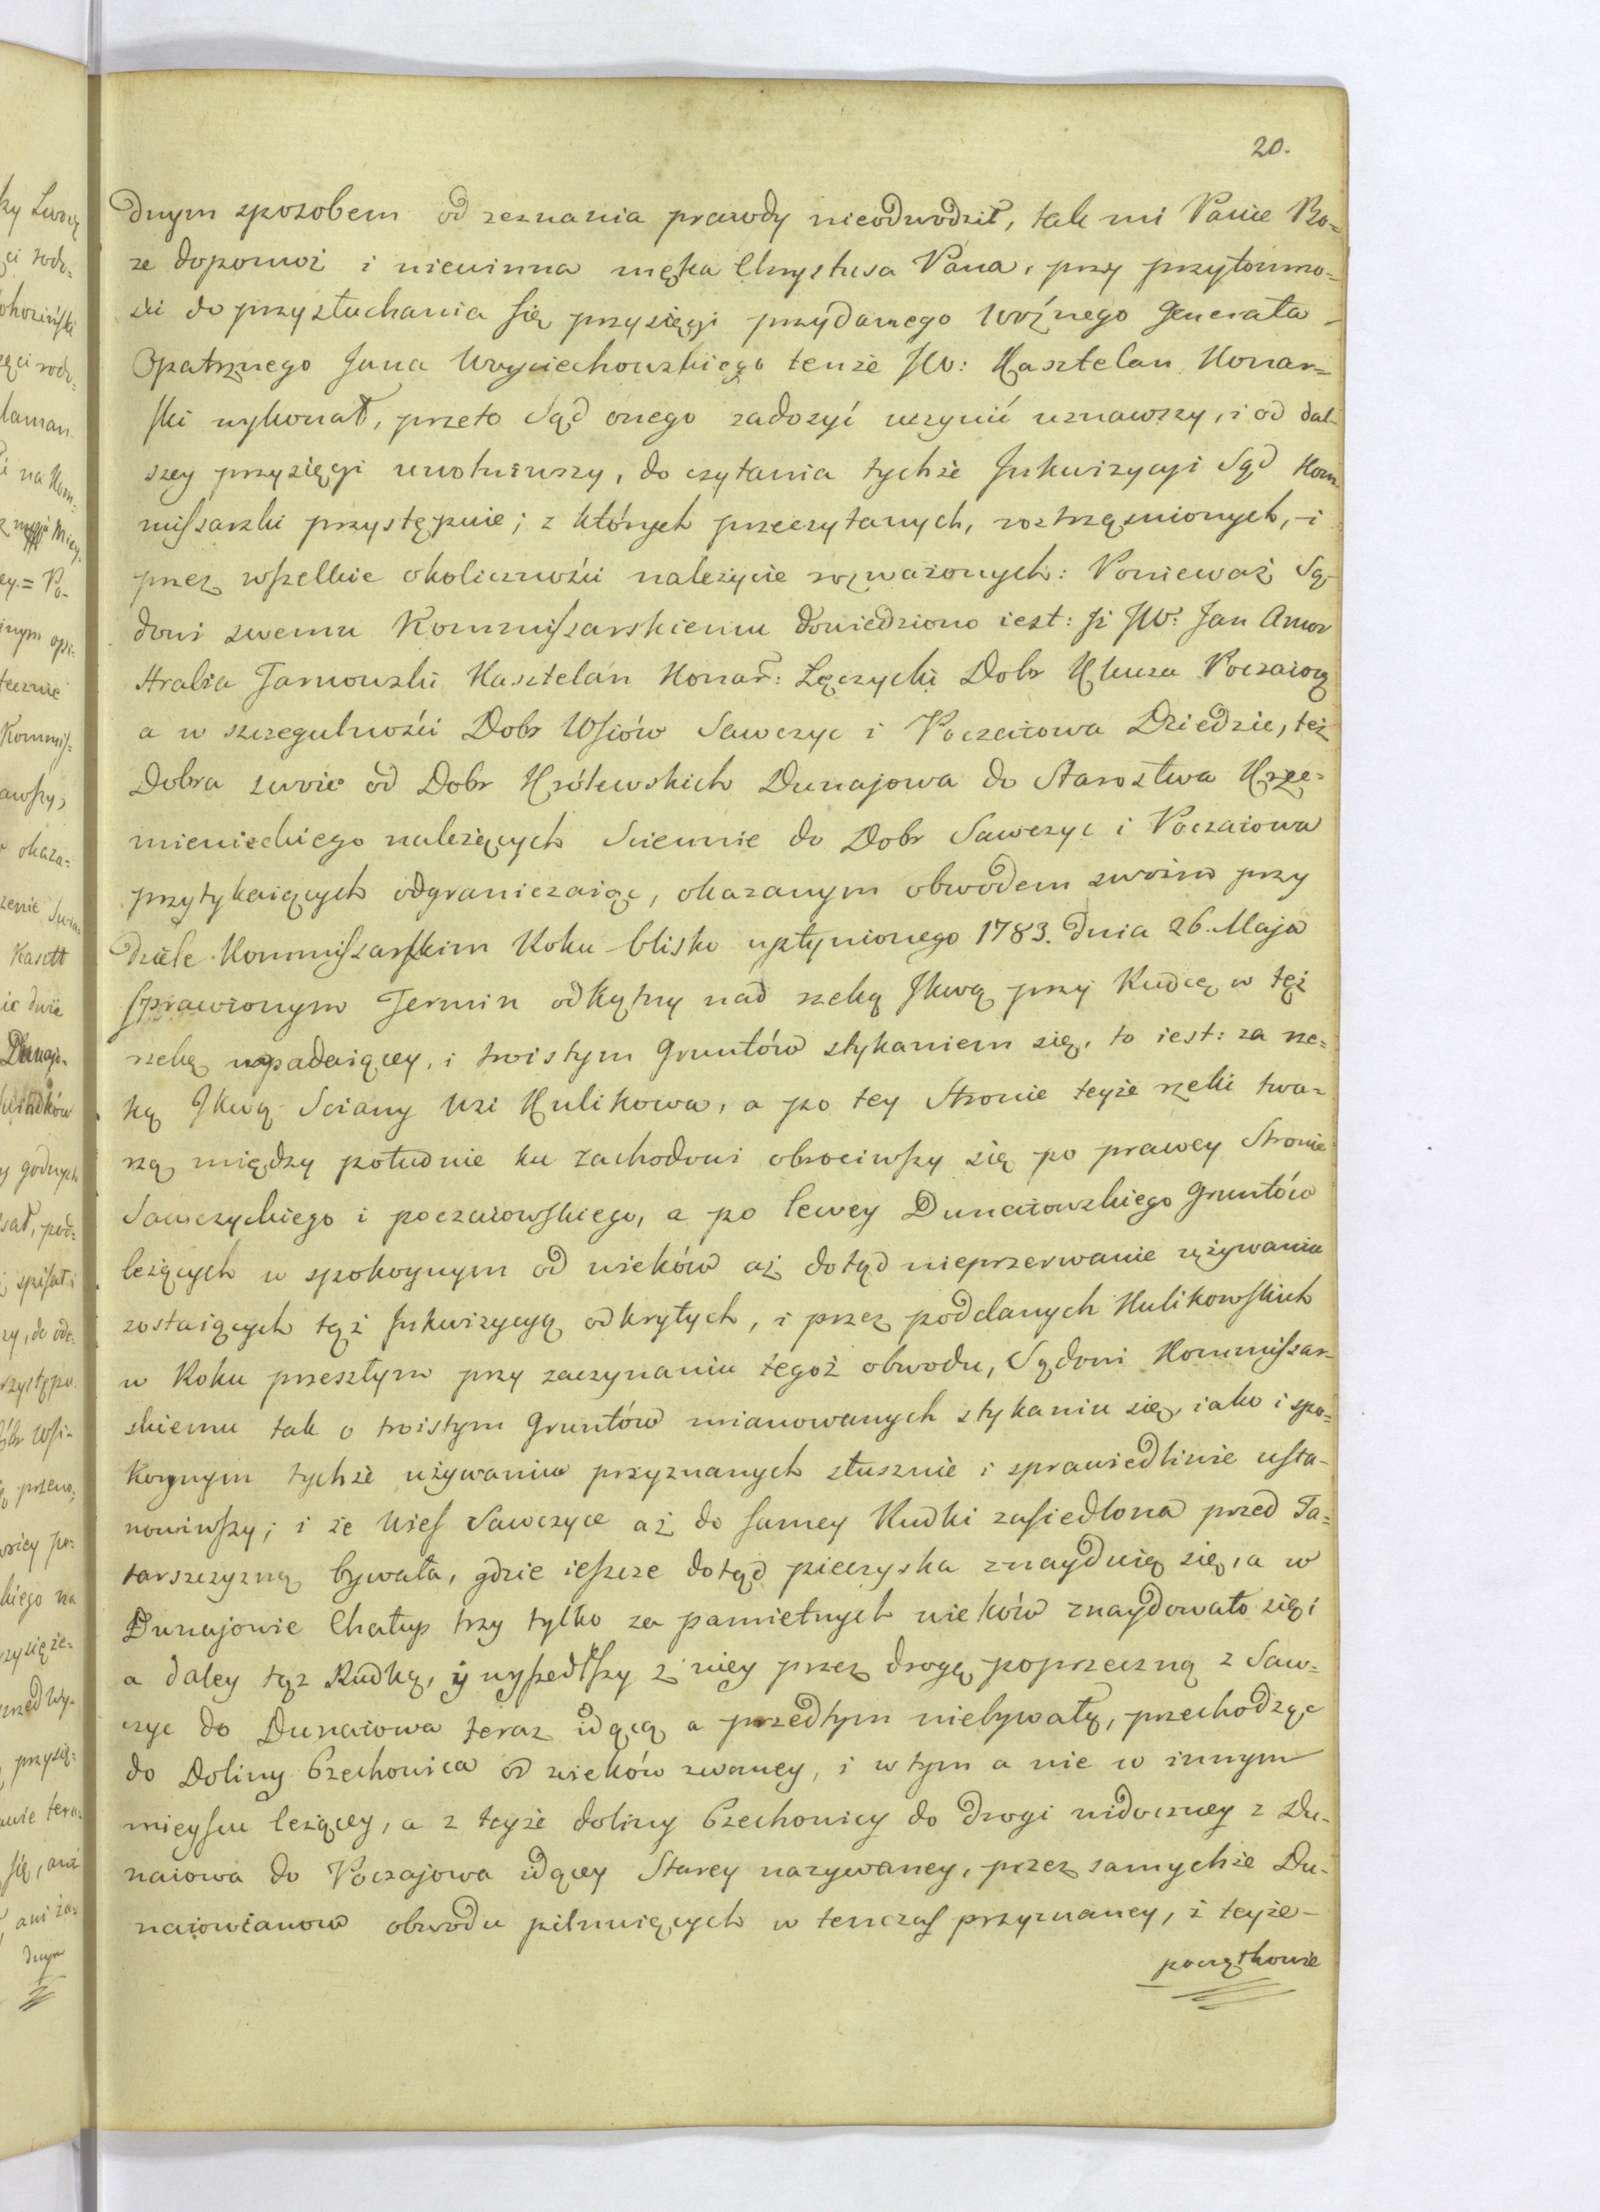 20.
dnym sposobem od zeznania prawdy nieodwodził, tak mi Panie Bo=
że dopomoż i niewinna męka Chrystusa Pana, przy przytomno=
ści do przysłuchania się przysięgi przydanego Woźnego Generała
Opatrznego Jana Woyciechowskiego tenże JW: Kasztelan Konar=
ski wykonał, przeto Sąd onego zadosyć uczynić uznawszy, i od dal=
szey przysięgi uwolniwszy, do czytania tychże Inkwizycyi Sąd Kom=
missarski przystępuie; z których przeczytanych, roztrząśnionych, i
przez wszelkie okoliczności należycie rozważonych: Ponieważ Są=
dowi swemu Kommissarskiemu dowiedziono iest: Iż JW: Jan Amor
Hrabia Tarnowski Kasztelan Konar: Łęczycki Dobr Klucza Poczaiow
a w szczegulności Dobr Wsiów Sawczyc i Poczaiowa Dziedzic, też
Dobra swoie od Dobr Królewskich Dunajowa do Starostwa Krze=
mienieckiego należących Sciennie do Dobr Sawczyc i Poczaiowa
przytykaiących odgraniczaiąc, okazanym obwodem swoim przy
dziele Kommissarskim Roku blisko upłynionego 1783. dnia 26. Maja
sprawionym Termin odkątny nad rzeką Ikwą przy Rudce w tęż
rzekę wpadaiącey, i troistym Gruntów stykaniem się, to iest: za rze=
ką Ikwą Sciany Wsi Kulikowa, a po tey Stronie teyże rzeki twa=
rzą między południe ku zachodowi obrociwszy się po prawey Stronie
Sawczyckiego i poczaiowskiego, a po lewey Dunaiowskiego Gruntów
leżących w spokoynym od wieków aż dotąd nieprzerwanie używaniu
zostaiących tęż Inkwizycyą odkrytych, i przez poddanych Kulikowskich
w Roku przeszłym przy zaczynaniu tegoż obwodu, Sądowi Kommissar=
skiemu tak o troistym Gruntów mianowanych stykaniu się, iako i spo=
koynym tychże używaniu przyznanych słusznie i sprawiedliwie usta=
nowiwszy; i że Wieś Sawczyce aż do samey Rudki zasiedlona przed Ta=
tarszczyzną bywała, gdzie ieszcze dotąd pieczyska znayduią się, a w
Dunajowie Chałup trzy tylko za pamiętnych wieków znaydowało się,
a daley tęż Rudkę, y wyszedłszy z niey przez drogę poprzeczną z Saw=
czyc do Dunaiowa teraz idącą a przedtym niebywałą, przechodząc
do Doliny Czechowica od wieków zwaney, i w tym a nie w innym
mieyscu leżącey, a z teyże doliny Czechowicy do drogi widoczney z Du=
naiowa do Poczajowa idącey Starey nazywaney, przez samychże Du=
naiowianow obwodu pilnuiących w tenczas przyznaney, i teyże
początkowie